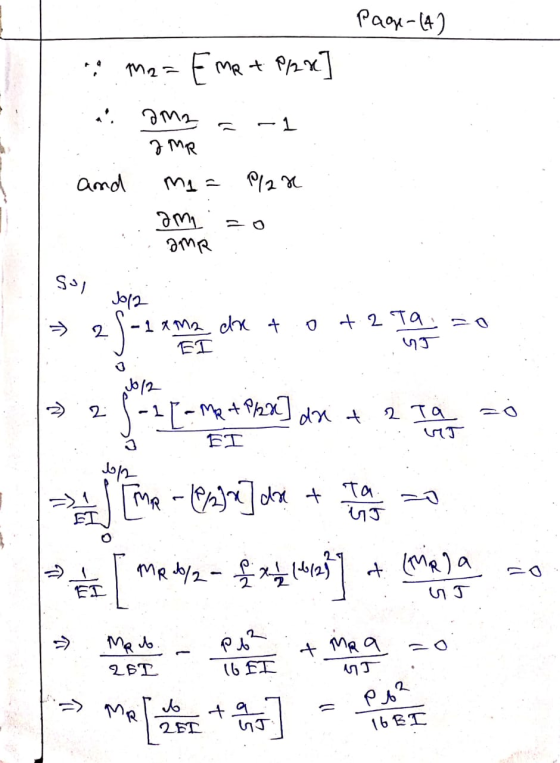 Page-(4)
∵ M2 = [-MR + P/2x]
∴ ∂M2/∂MR = -1
and M1 = P/2 x
∂M1/∂MR = 0
So,
⇒ 2 ∫₀^{b/2} -1 × M2/EI dx + 0 + 2 Ta/GJ = 0
⇒ 2 ∫₀^{b/2} -1[-MR + P/2x]/EI dx + 2 Ta/GJ = 0
⇒ 1/EI ∫₀^{b/2} [MR - (P/2)x] dx + Ta/GJ = 0
⇒ 1/EI [MR b/2 - P/2 × 1/2 (b/2)²] + (MR)a/GJ = 0
⇒ MR b/2EI - Pb²/16EI + MR a/GJ = 0
⇒ MR [b/2EI + a/GJ] = Pb²/16EI